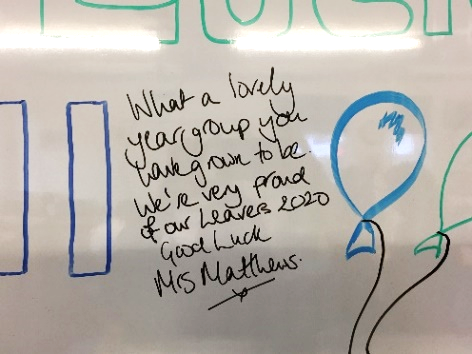 LUCK
What a lovely
year group you
have grown to be.
We're very proud
of our Leavers 2020
Good Luck
Mrs Matthews.
x